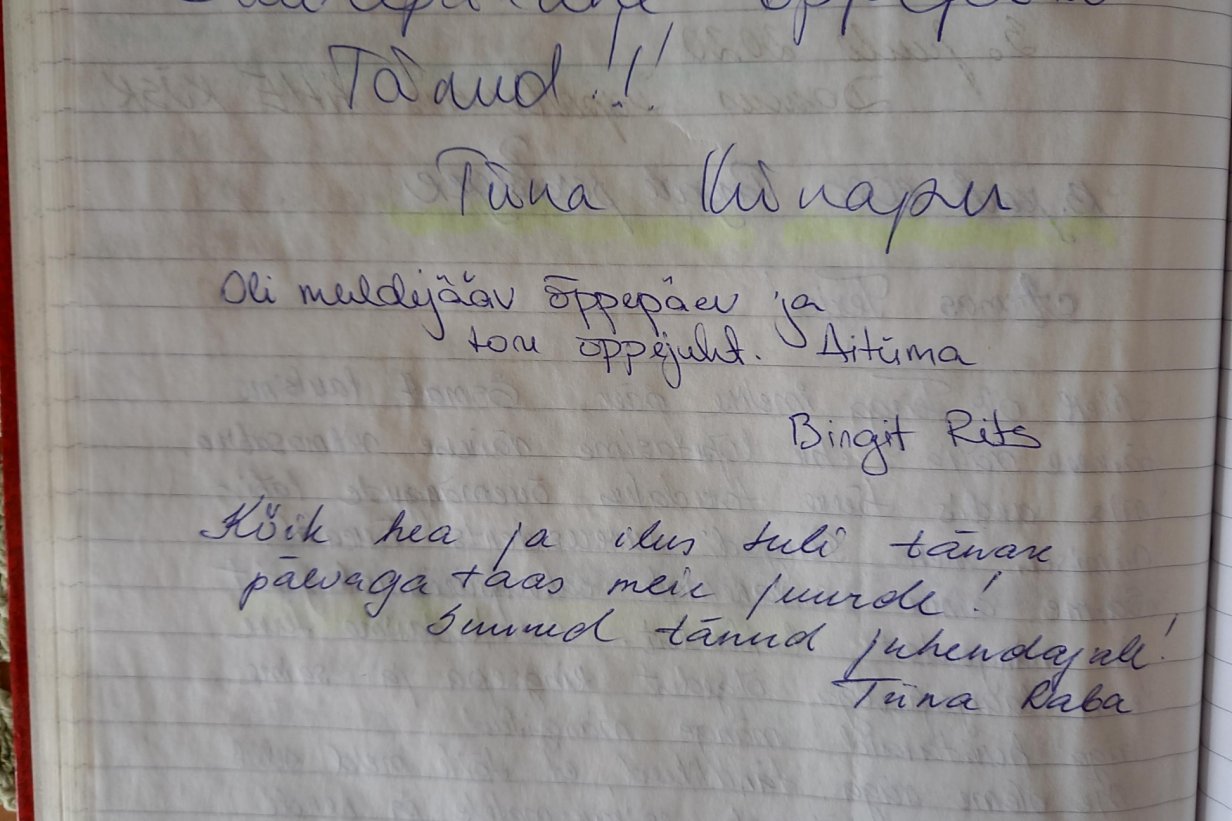 Tänud!!!
Tiina Kiinapuu
Oli meeldejääv õppepäev ja
tore õppejuht. Aitüma
Birgit Rits
Kõik hea ja ilus tuli tänase
päevaga taas meie juurde!
Suured tänud juhendajale!
Tiina Raba